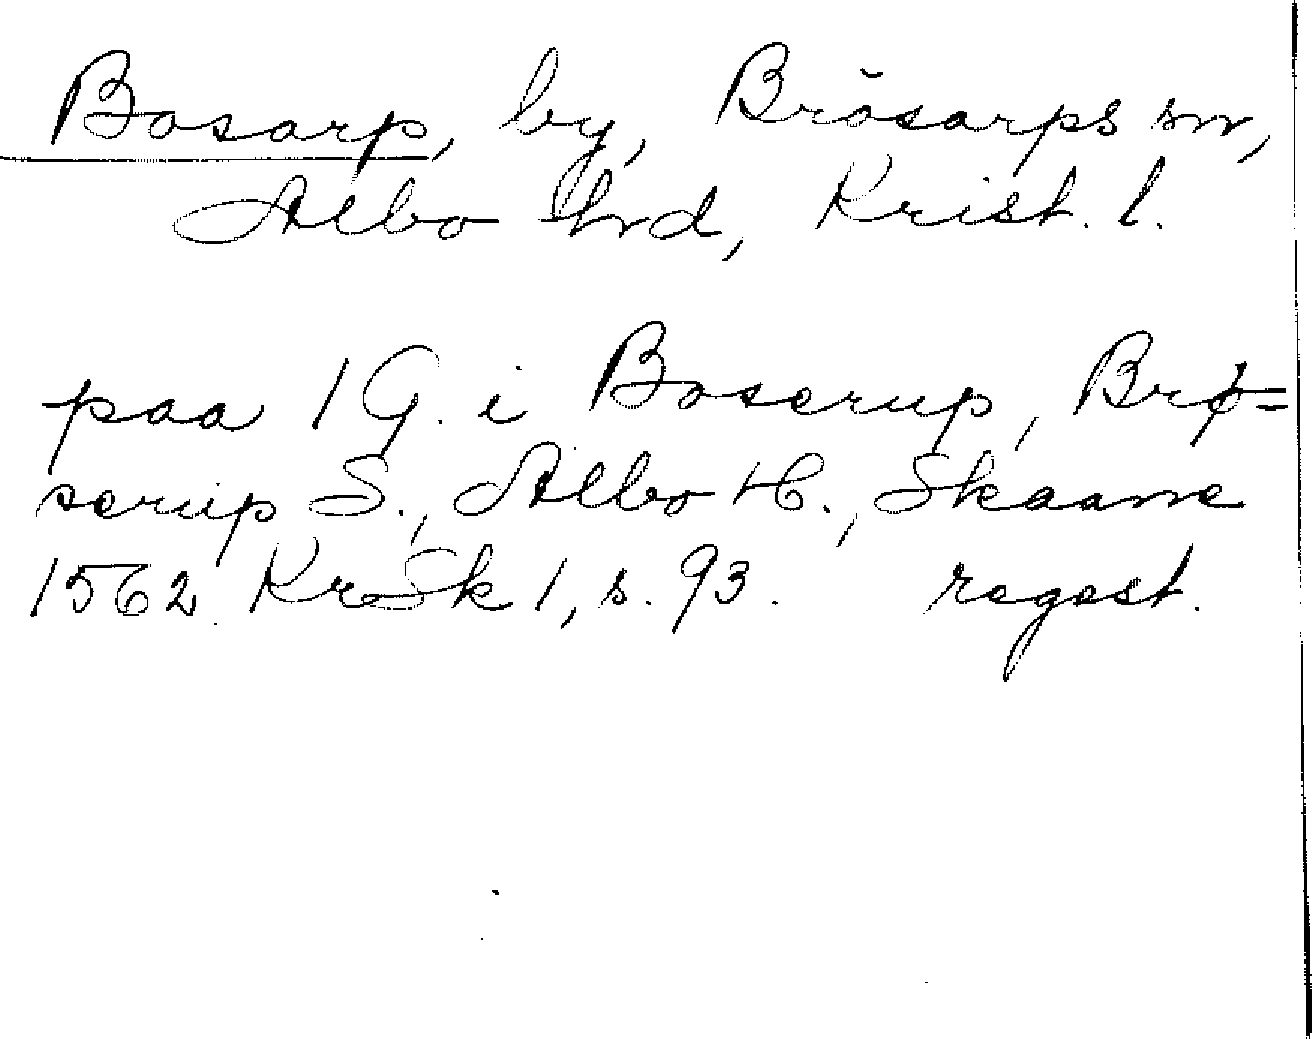 Bosarp, by, Brösarps sn,
Albo hrd, Krist. l.
paa 1 G. i Boserup, Brø=
serup S., Albo H., Skaane
1562. KrSk 1, s. 93. regest.